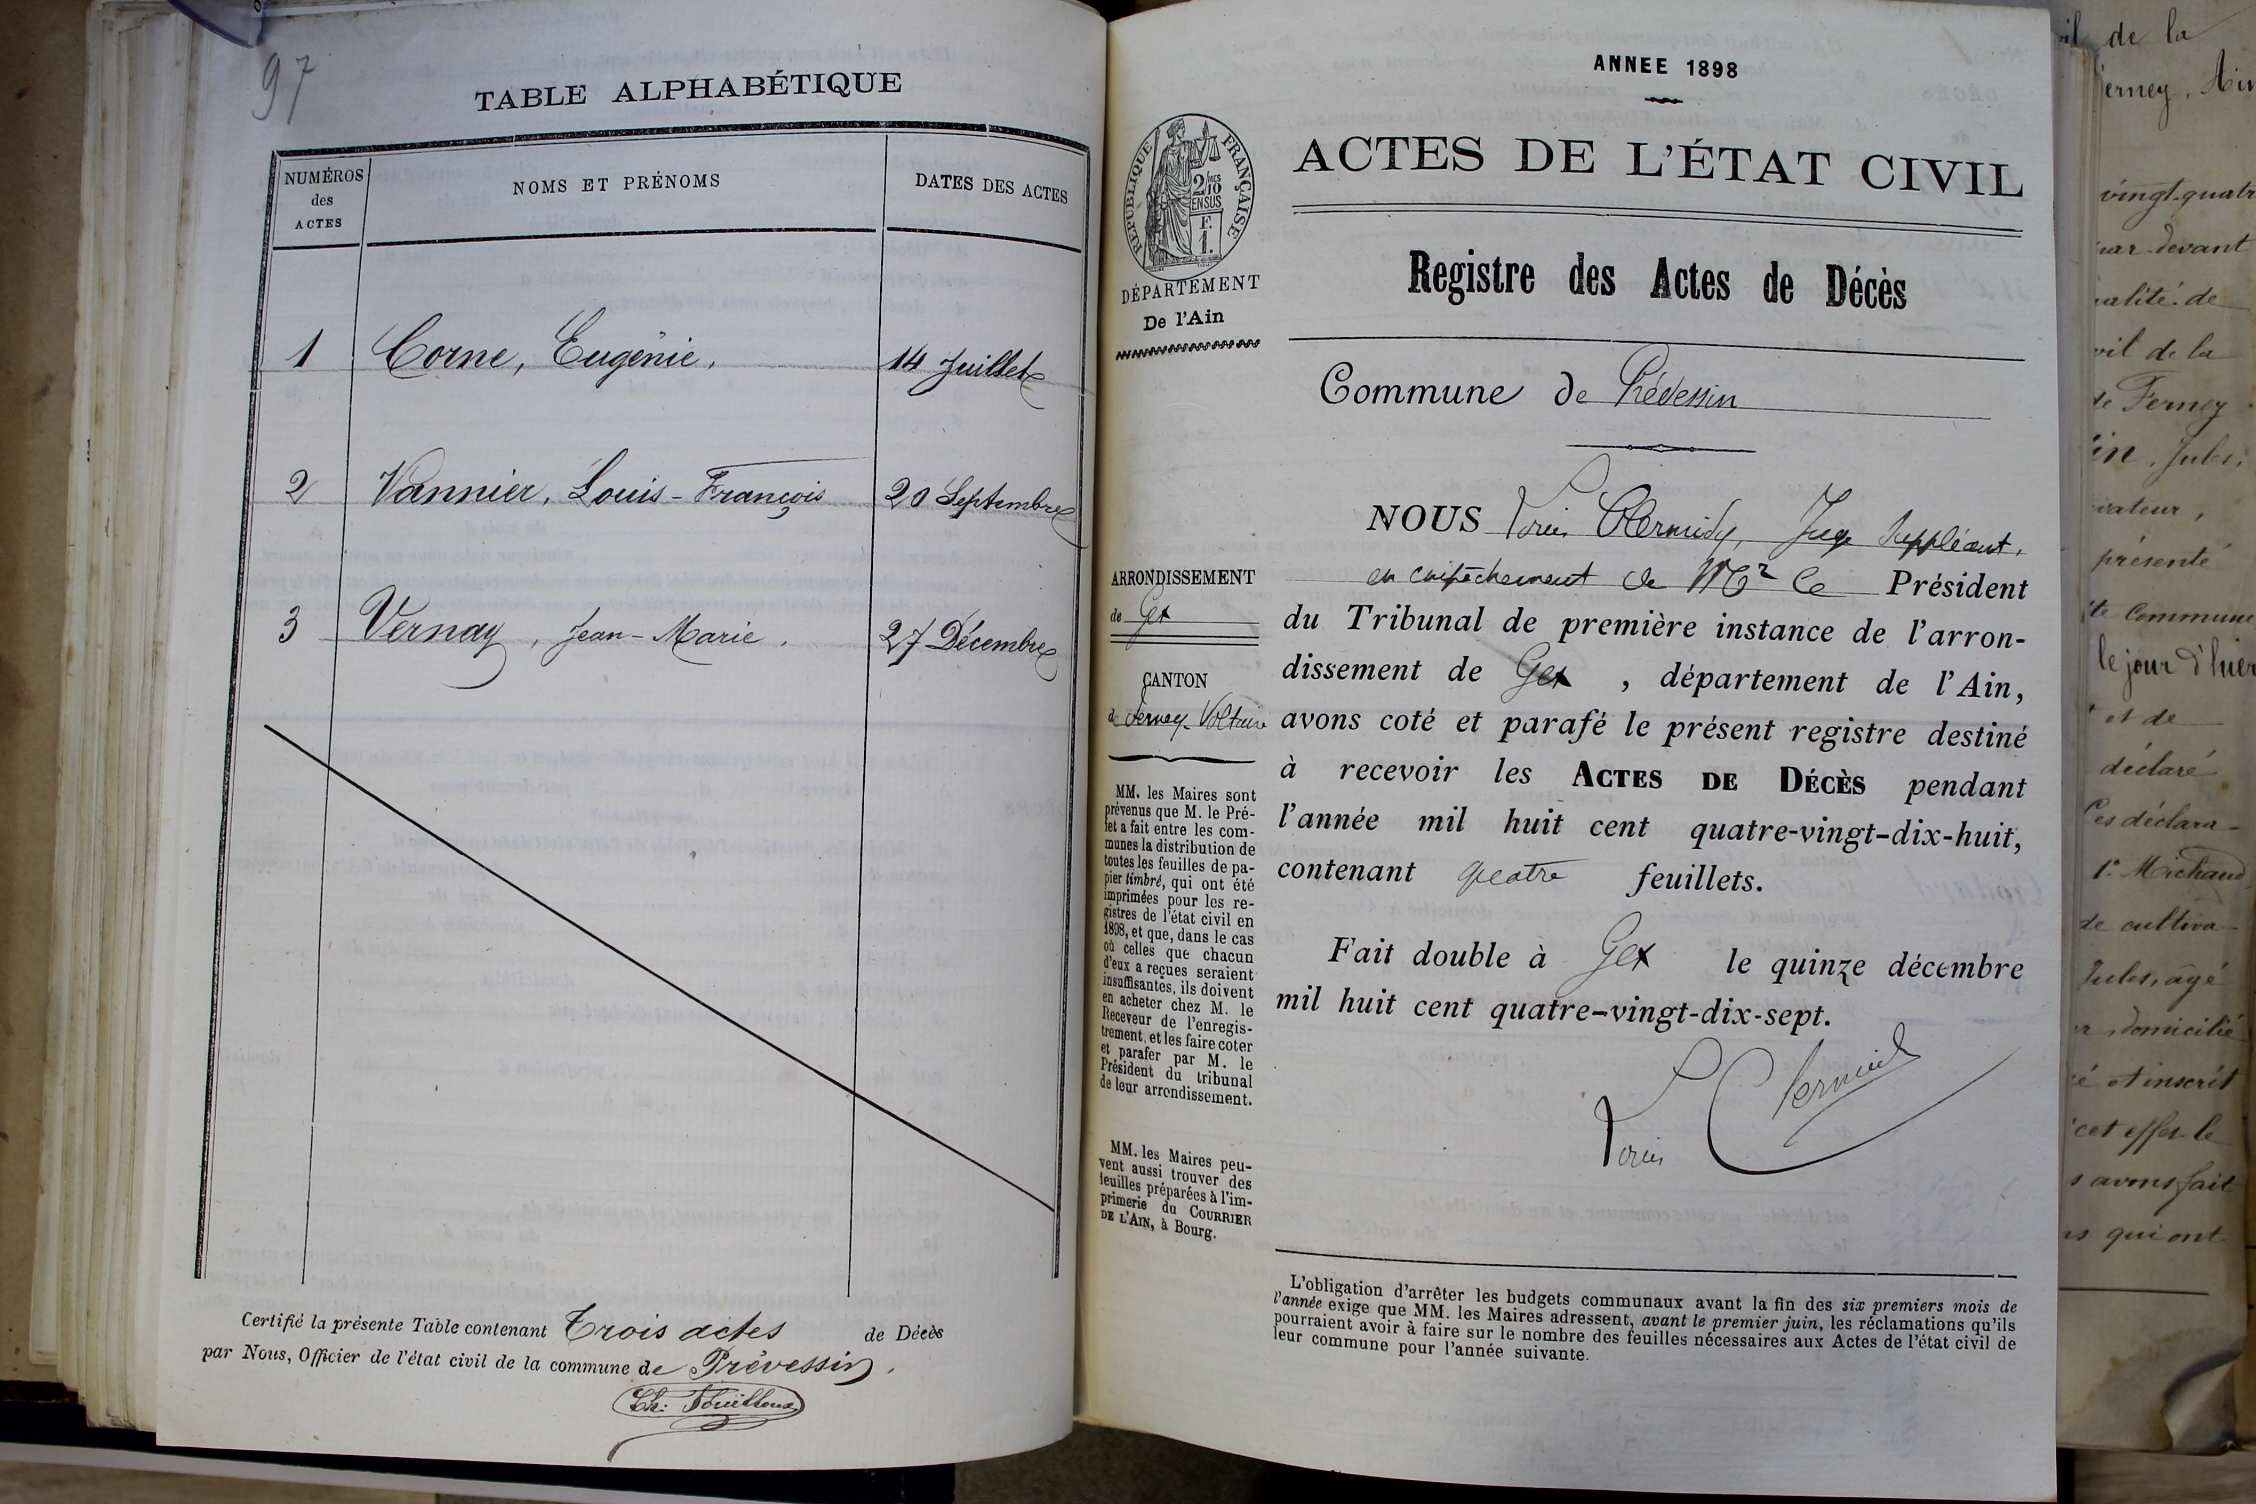 97
TABLE ALPHABÉTIQUE
NUMÉROS
des
ACTES
NOMS ET PRÉNOMS
DATES DES ACTES
1 Corne, Eugénie, 14 Juillet
2 Vannier, Louis-François 20 Septembre
3 Vernay, Jean-Marie. 27 Décembre
Certifié la présente Table contenant Trois actes de Décès
par Nous, Officier de l'état civil de la commune de Prévessin.
ANNEE 1898
RÉPUBLIQUE FRANÇAISE
2/10 MES
EN SUS
F.
1.
DÉPARTEMENT
De l'Ain
ACTES DE L'ÉTAT CIVIL
Registre des Actes de Décès
Commune de Prévessin
ARRONDISSEMENT
de Gex
CANTON
de Ferney-Voltaire
MM. les Maires sont
prévenus que M. le Pré-
fet a fait entre les com-
munes la distribution de
toutes les feuilles de pa-
pier timbré, qui ont été
imprimées pour les re-
gistres de l'état civil en
1898, et que, dans le cas
où celles que chacun
d'eux a reçues seraient
insuffisantes, ils doivent
en acheter chez M. le
Receveur de l'enregis-
trement, et les faire coter
et parafer par M. le
Président du tribunal
de leur arrondissement.
MM. les Maires peu-
vent aussi trouver des
feuilles préparées à l'im-
primerie du COURRIER
DE L'AIN, à Bourg.
NOUS Juge Suppléant,
en empêchement de Mr le Président
du Tribunal de première instance de l'arron-
dissement de Gex, département de l'Ain,
avons coté et parafé le présent registre destiné
à recevoir les ACTES DE DÉCÈS pendant
l'année mil huit cent quatre-vingt-dix-huit,
contenant quatre feuillets.
Fait double à Gex le quinze décembre
mil huit cent quatre-vingt-dix-sept.
L'obligation d'arrêter les budgets communaux avant la fin des six premiers mois de
l'année exige que MM. les Maires adressent, avant le premier juin, les réclamations qu'ils
pourraient avoir à faire sur le nombre des feuilles nécessaires aux Actes de l'état civil de
leur commune pour l'année suivante.
de la
vingt-quatr
par-devant
alité de
vil de la
de Ferney
Jules,
présenté
commune
le jour d'hier
et de
déclaré
Ces déclara-
1° Michaud
de cultiva-
Jules, âgé
domicilié
et inscrit
cet effet le
avons fait
qui ont